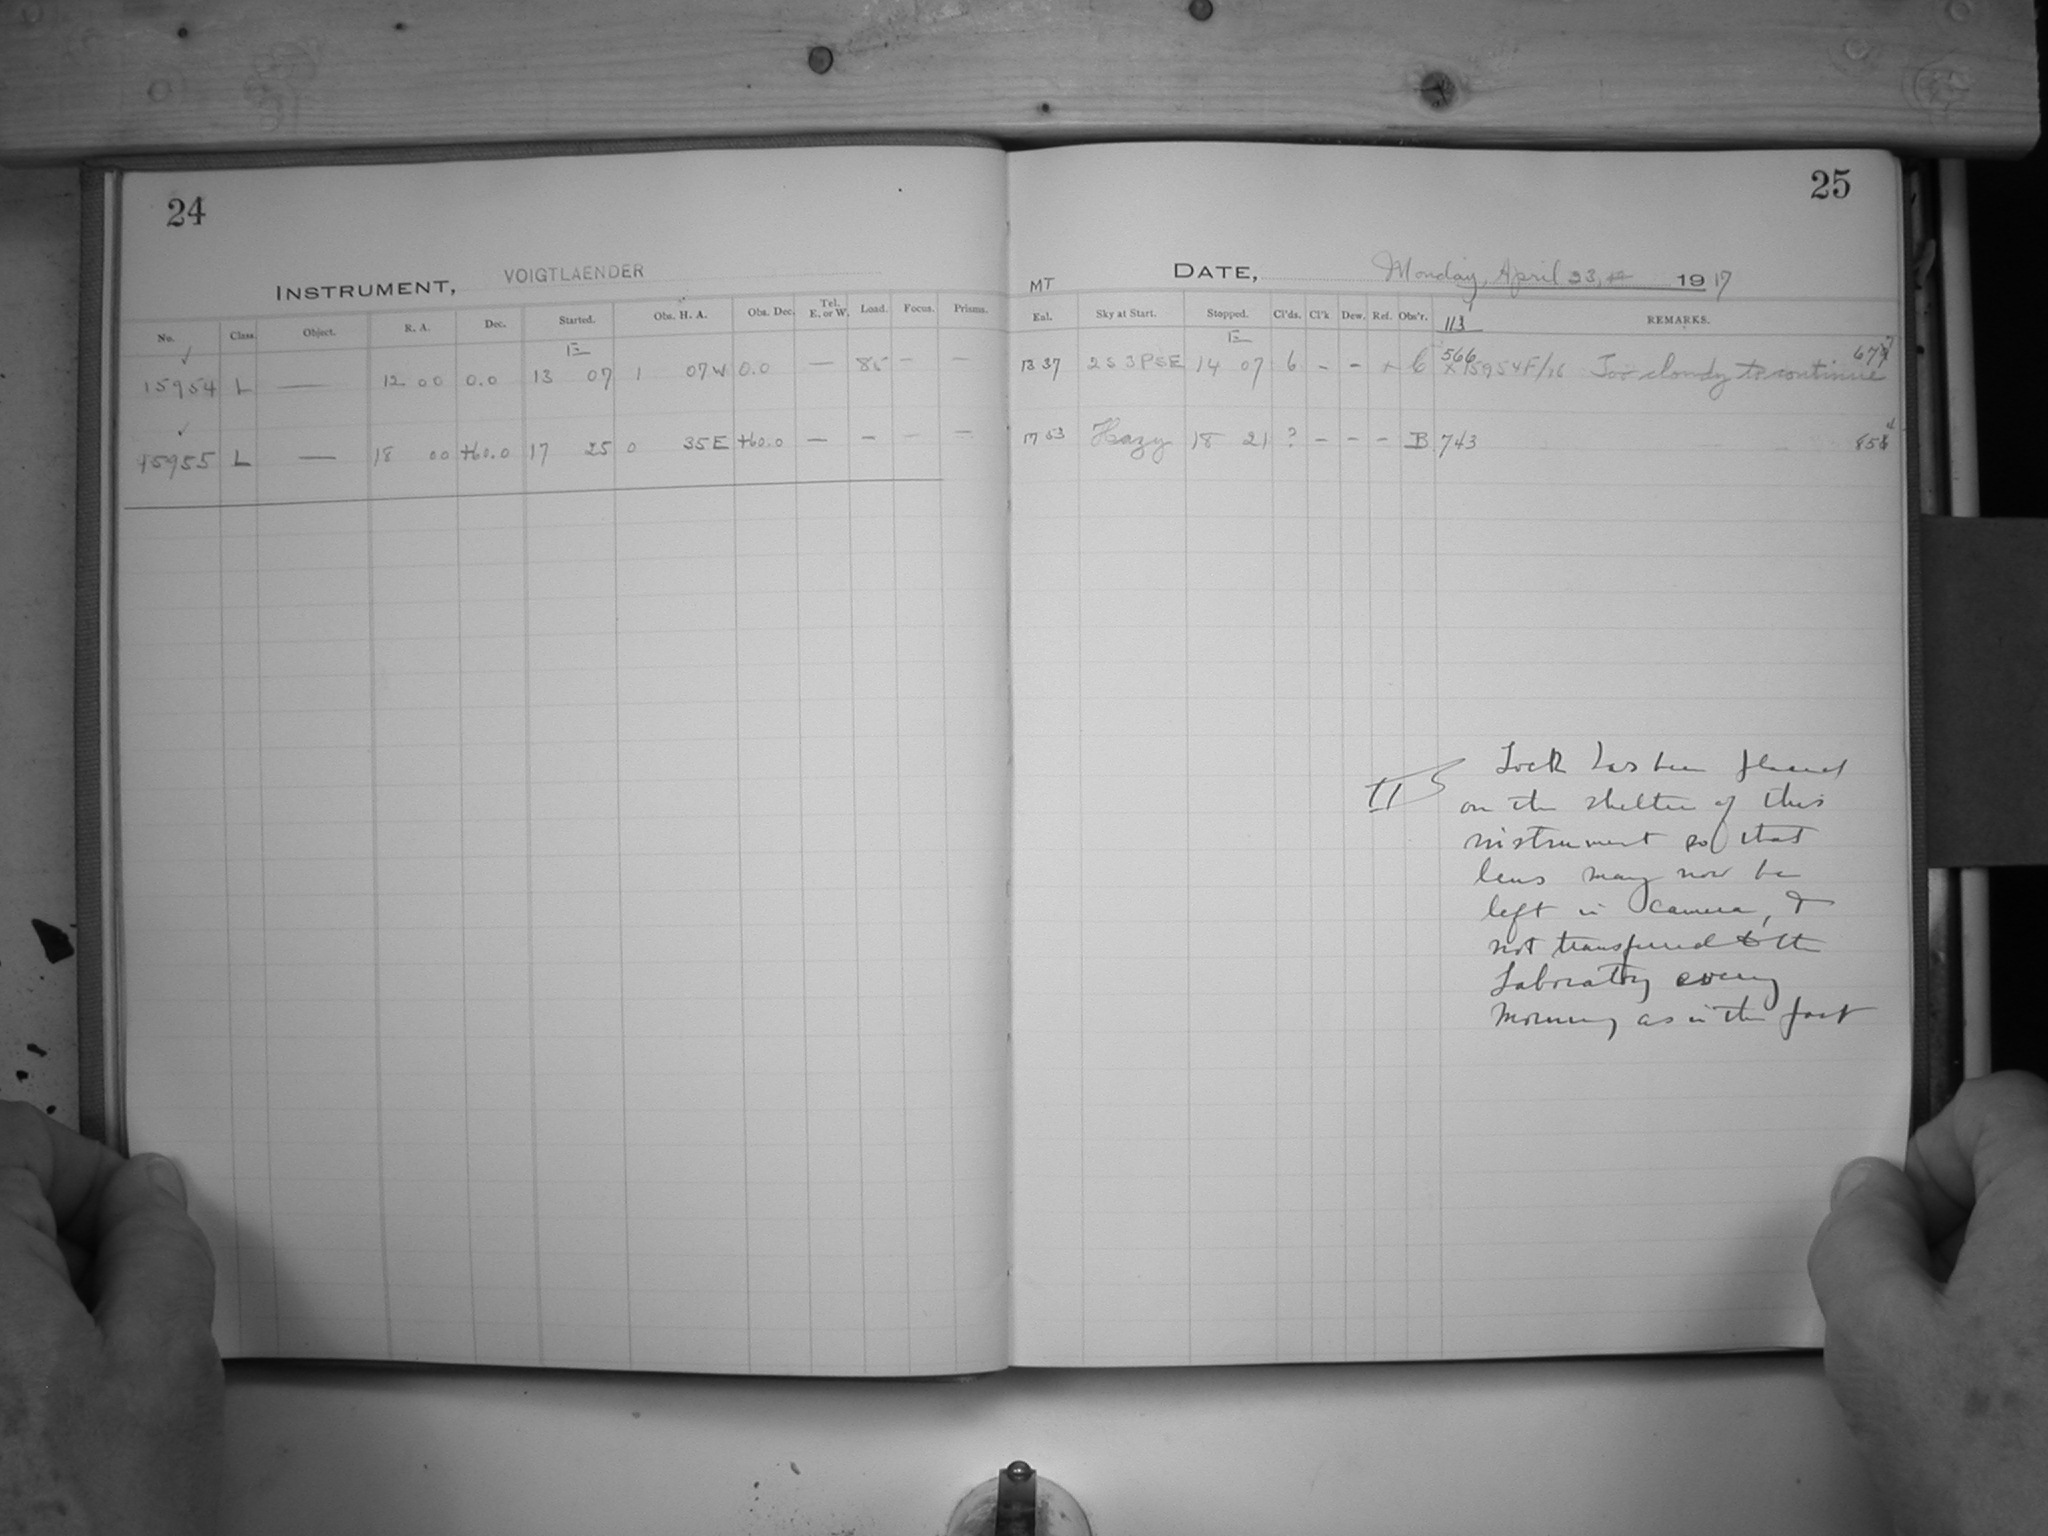 24
INSTRUMENT, VOIGTLAENDER
No. Class. Object. R. A. Dec. Started. Obs. H. A. Obs. Dec. Tel. E. or W. Load. Focus. Prisms.
E
15954 L — 12 00 0.0 13 07 1 07W 0.0 — 85 — —
15955 L — 18 00 +60.0 17 25 0 35E +60.0 — — — —
25
MT DATE, Monday, April 23, 1917
Eal. Sky at Start. Stopped. Cl'ds. Cl'k Dew. Ref. Obs'r. 113 REMARKS.
E
13 37 2S 3PSE 14 07 6 - - C 566 X15954F/16 Too cloudy to continue 677
17 53 Hazy 18 21 ? - - - B 743 854
Lock has been placed
on the shelter of this
instrument so that
lens may now be
left in camera, &
not transferred to the
Laboratory every
morning as in the past